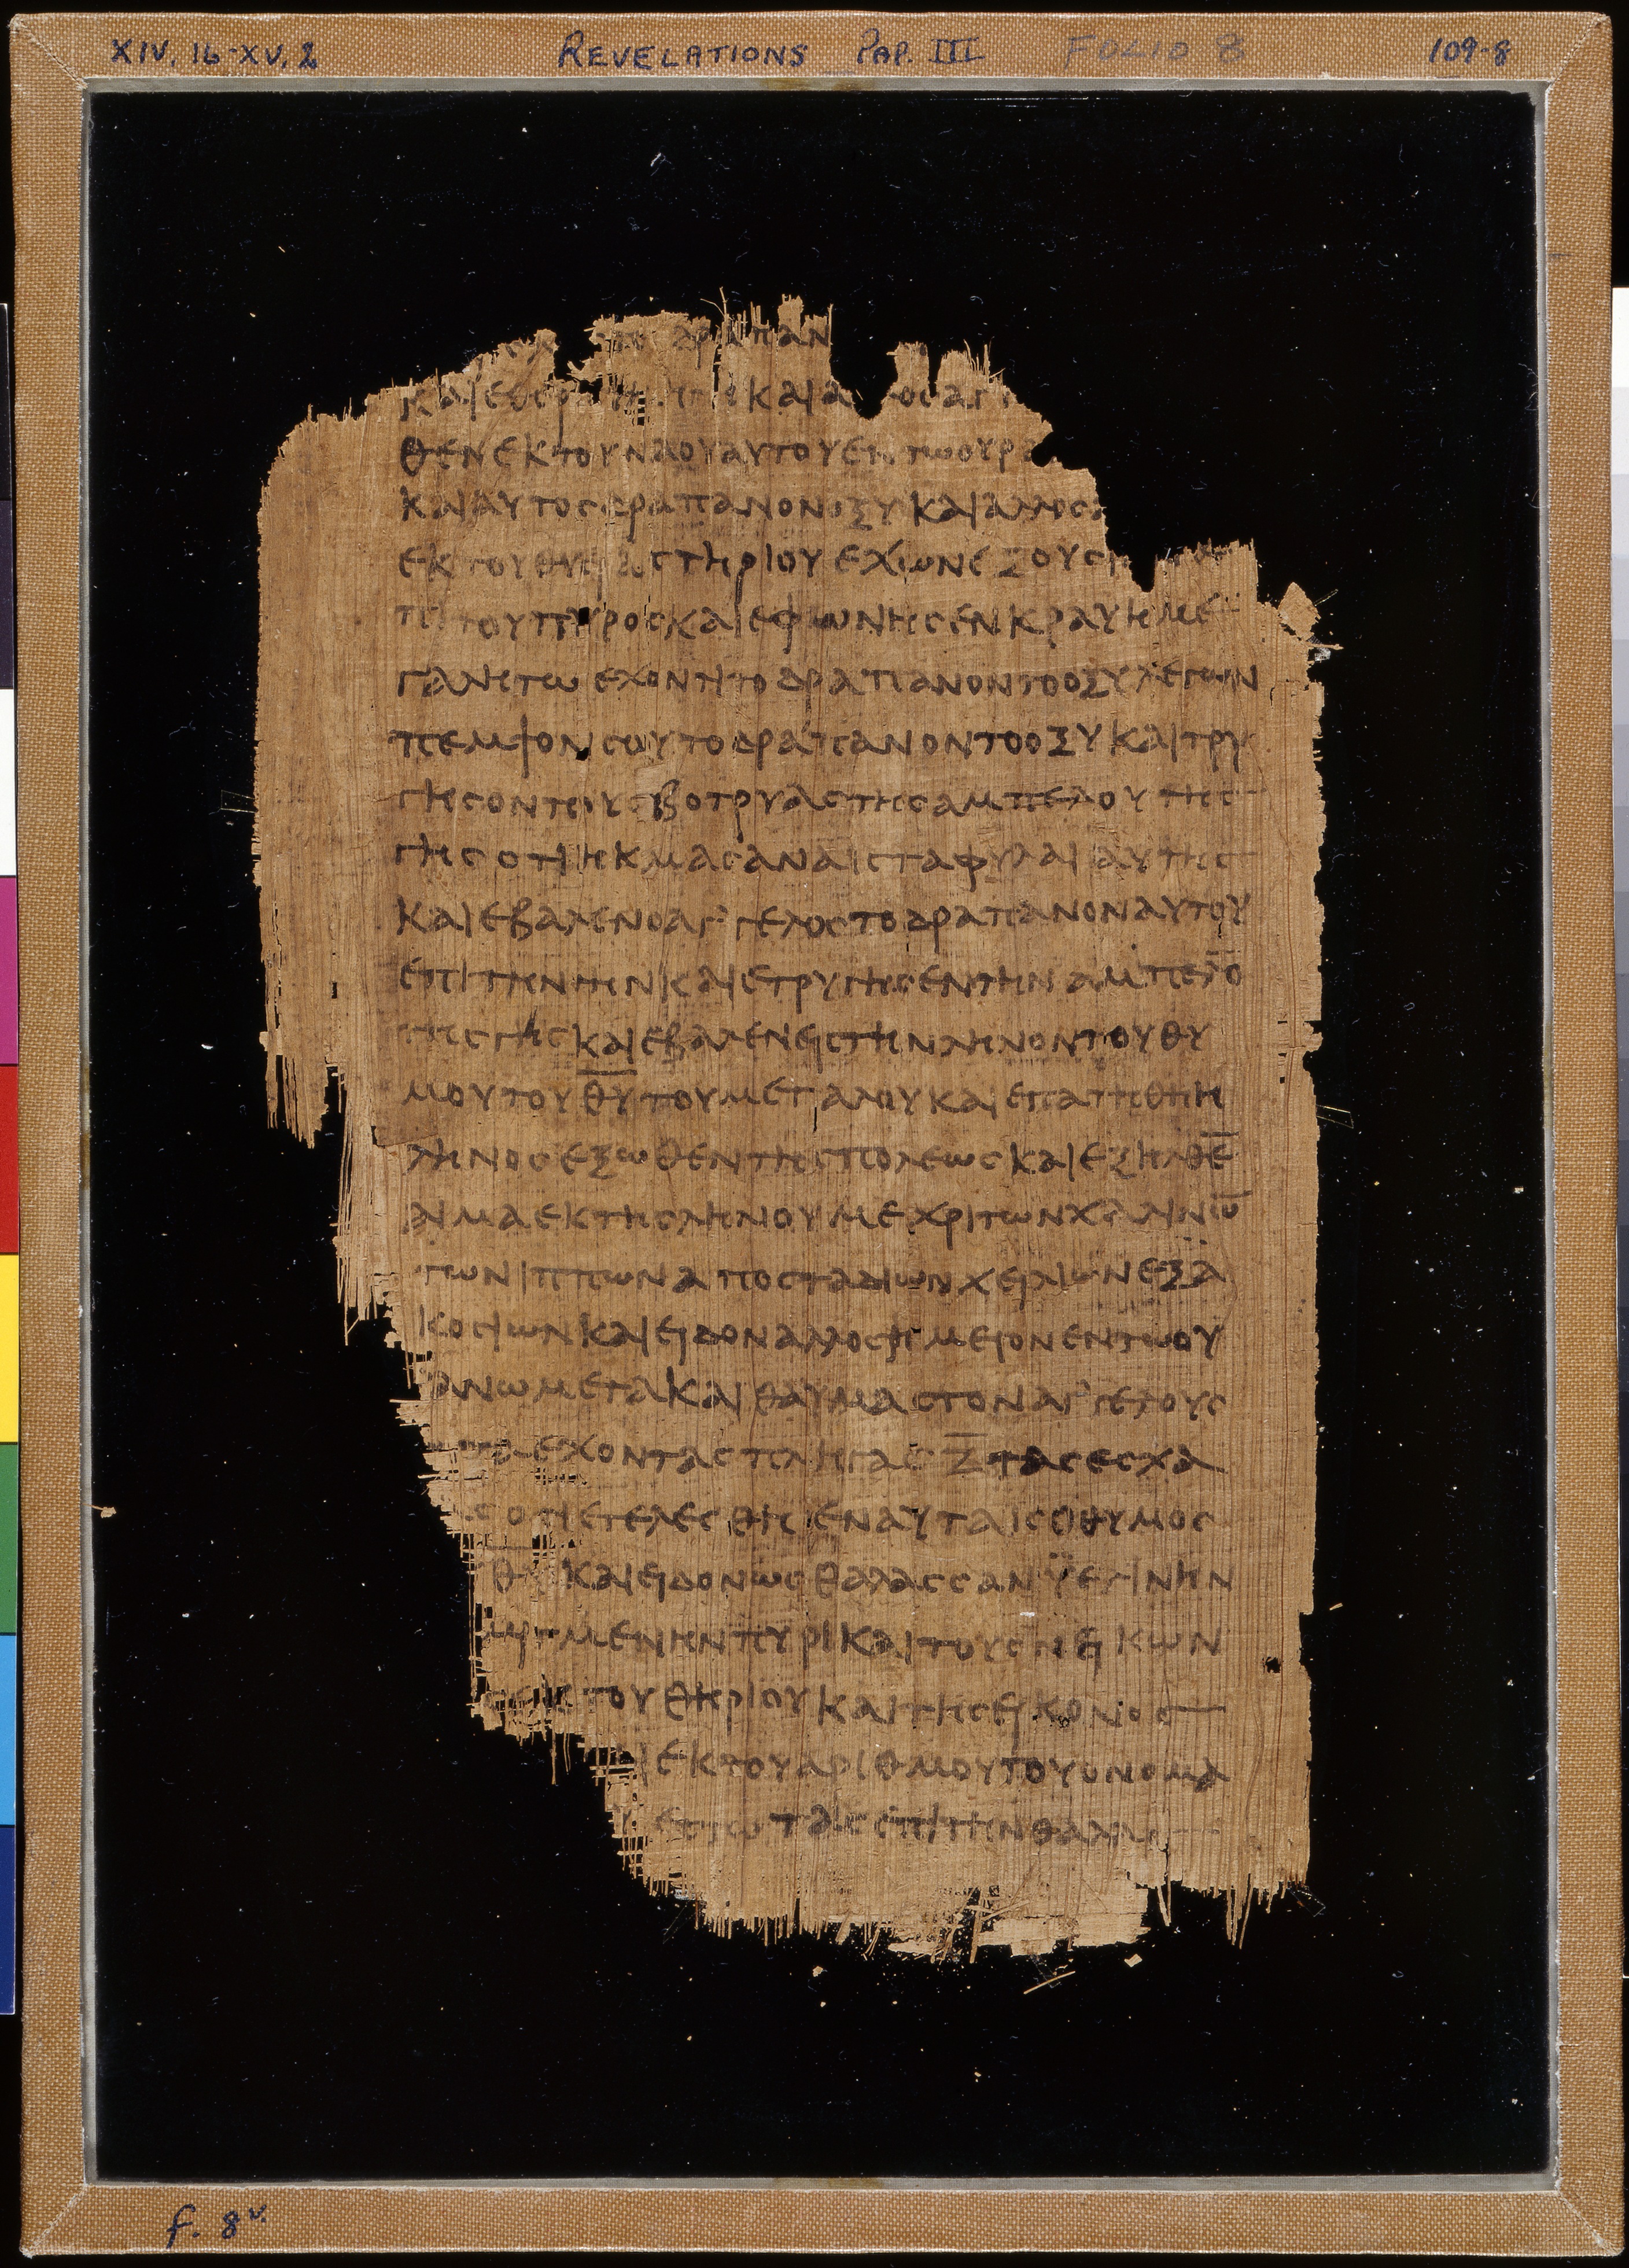 XIV, 16-XV, 2 REVELATIONS PAP. III FOLIO 8 109-8
δρεπαν
και εθερ και α
θεν εκ του ναου αυτου εν τω ουρα
και αυτος δραπανον οξυ και αλλος
εκ του θυσιαστηριου εχων εξουσ
του πυρος και εφωνησεν κραυη με
γαλη τω εχοντι το δραπανον το οξυ λεγων
πεμψον σου το δραπανον το οξυ και τρυ
γησον τους βοτρυας της αμπελου της
γης οτι ηκμασαν αι σταφυλαι αυτης
και εβαλεν ο αγγελος το δραπανον αυτου
επι την γην και ετρυγησεν την αμπελο̅
της γης και εβαλεν εις την ληνον του θυ
μου του θ̅υ̅ του μεγαλου και επατηθη η
ληνος εξωθεν της πολεως και εξηλθε̅
αιμα εκ της ληνου μεχρι των χαλινω̅
των ιππων απο σταδιων χειλιων εξα
κοσιων και ειδον αλλο σημειον εν τω ου
ανω μεγα και θαυμαστον αγγελους
εχοντας πληγας ζ̅ τας εσχα
ς οτι ετελεσθη εν αυταις ο θυμος
θ̅υ̅ και ειδον ως θαλασσαν ϋελινην
μενην πυρι και τους νεικων
εκ του θηριου και της εικονος
εκ του αριθμου του ονομα
υ εστωτας επι την θαλα
f. 8v.